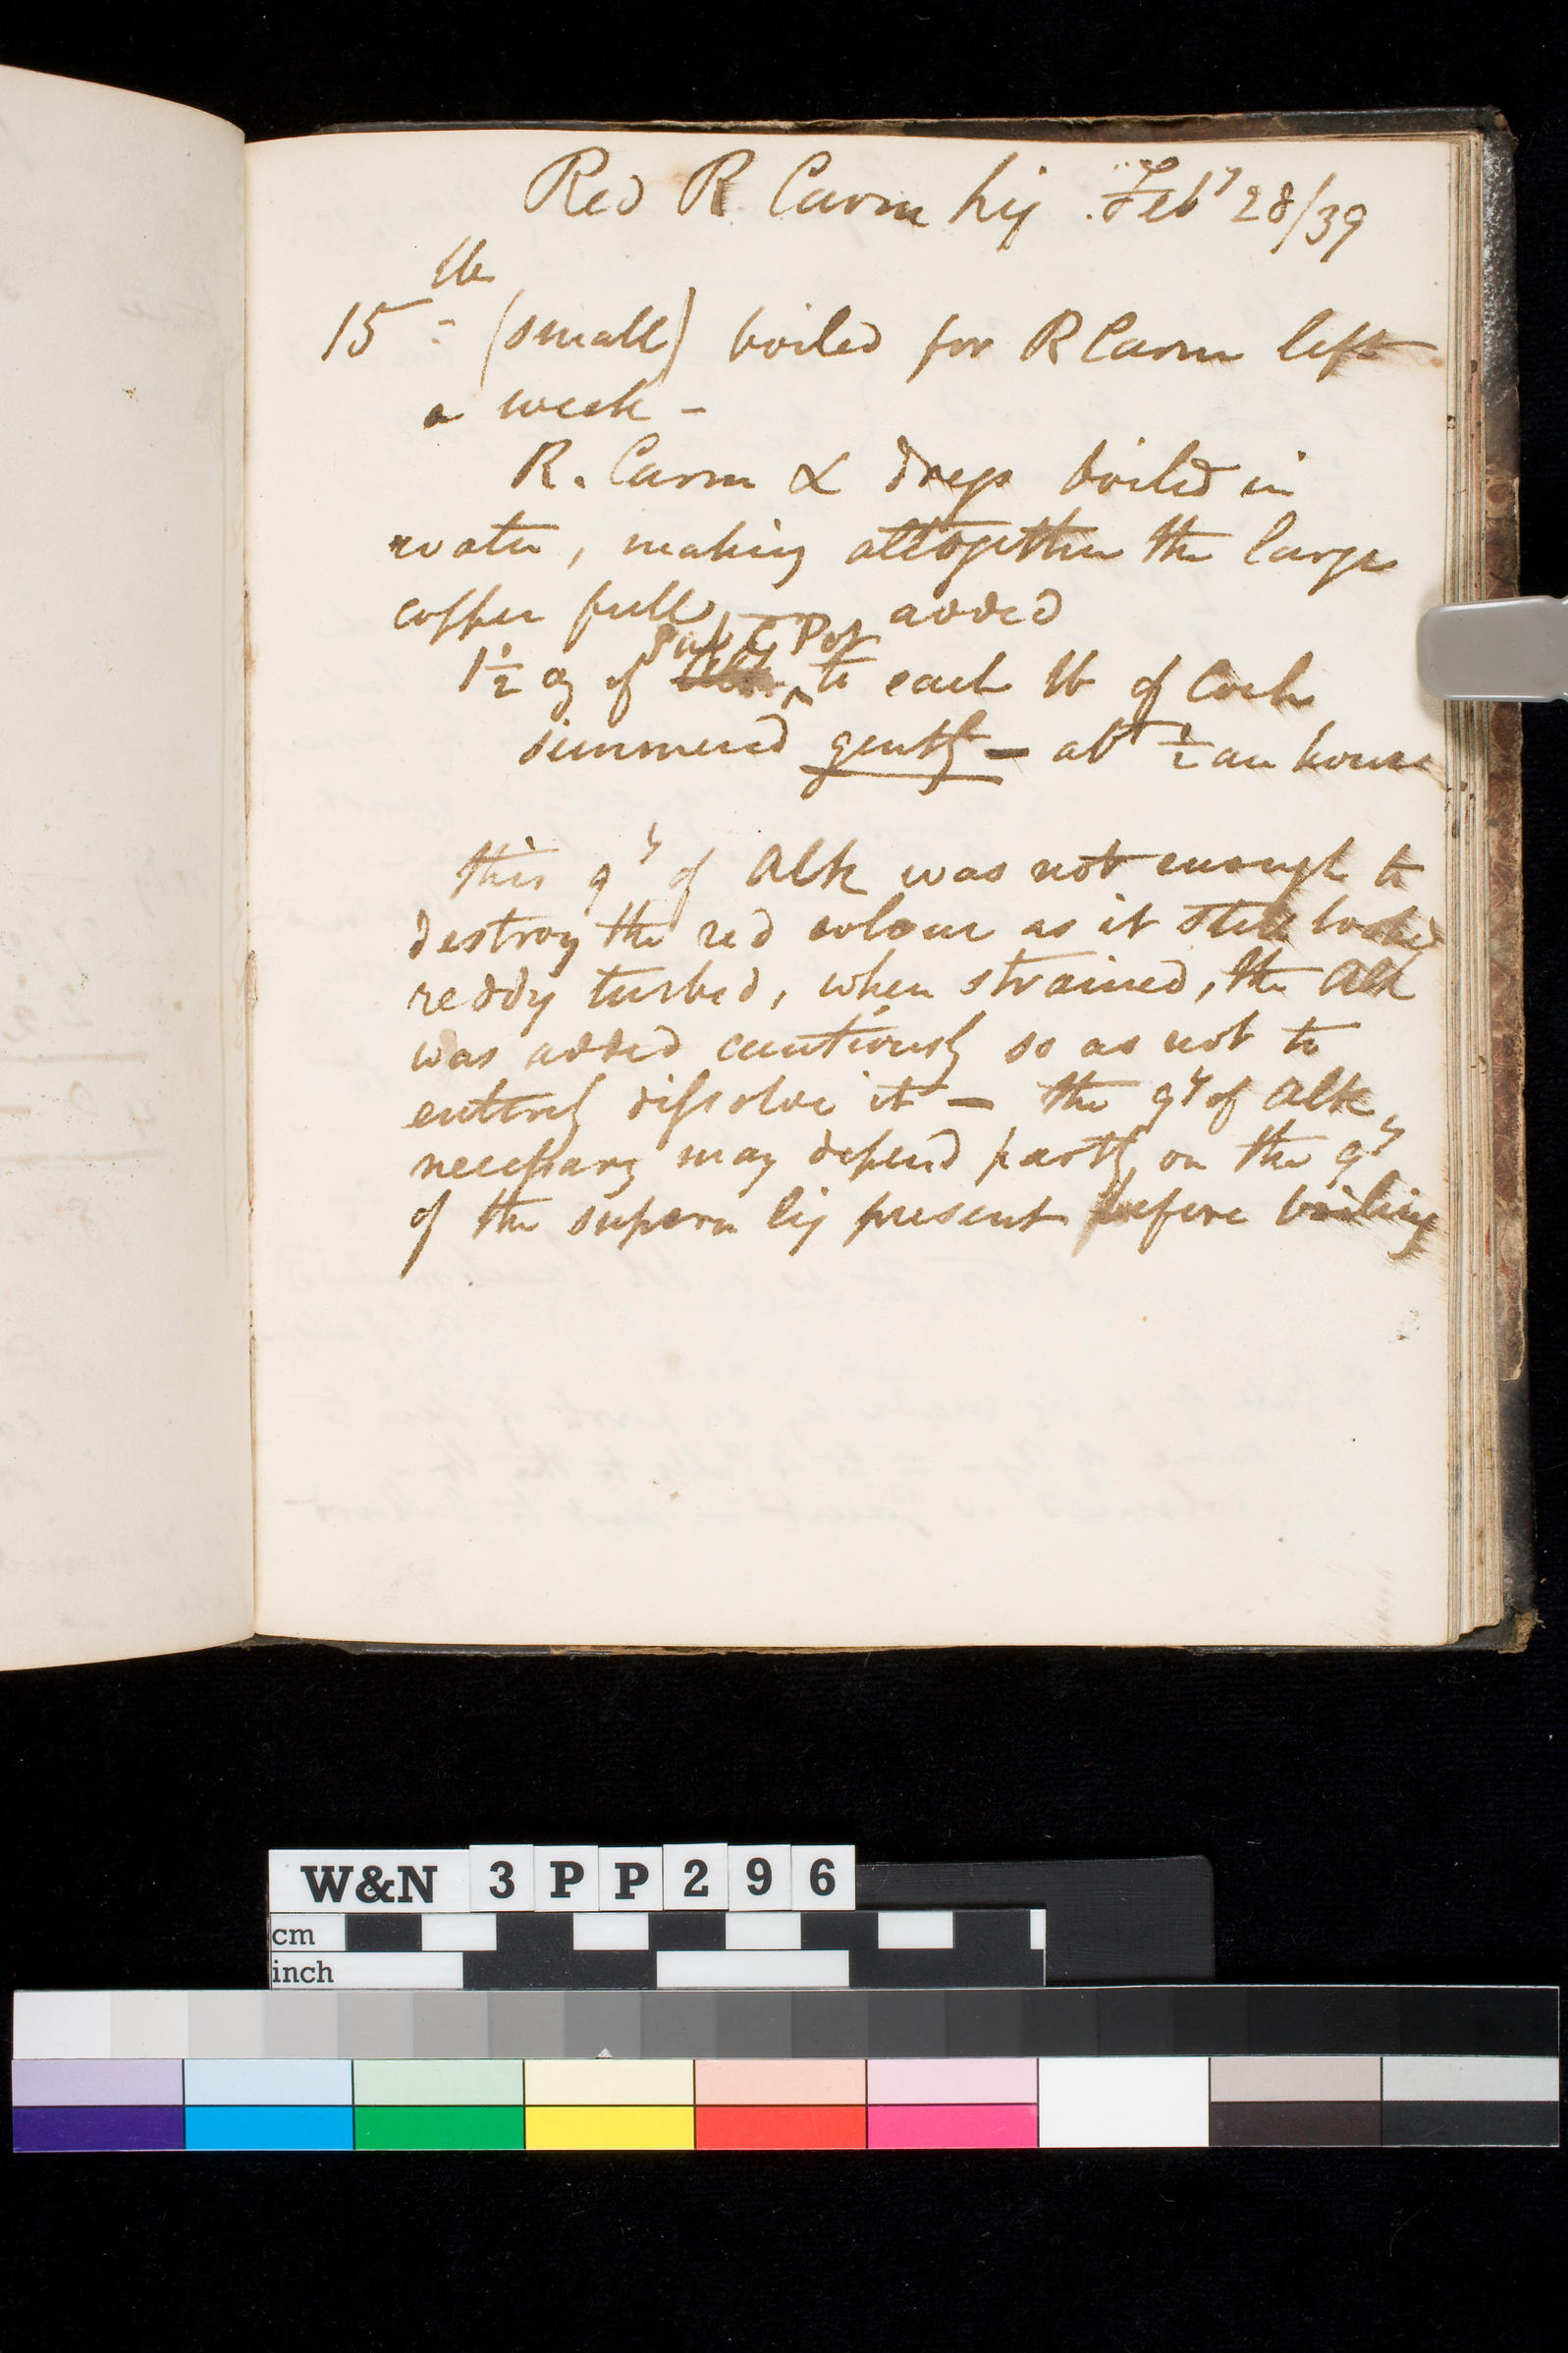 Red R Carm liq Feby 28/39
15 lb (small) boiled for R Carm left
a week -
R. Carm & dregs boiled in
water, making altogether the large
copper full added
1½ oz of Sub C Pot to each lb of Coch
simmered gently - abt ½ an hour
this qy of Alk was not enough to
destroy the red colour as it still looked
reddy turbed, when strained, the Alk
was added cautiously so as not to
entirely dissolve it - the qy of Alk
necessary may depend partly on the qy
of the supern liq present before boiling
W&N 3PP296
cm
inch